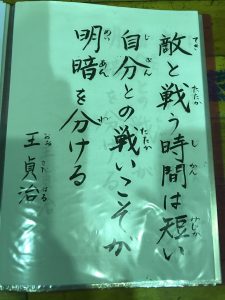 敵と戦う時間は短い
自分との戦いこそが
明暗を分ける
王貞治